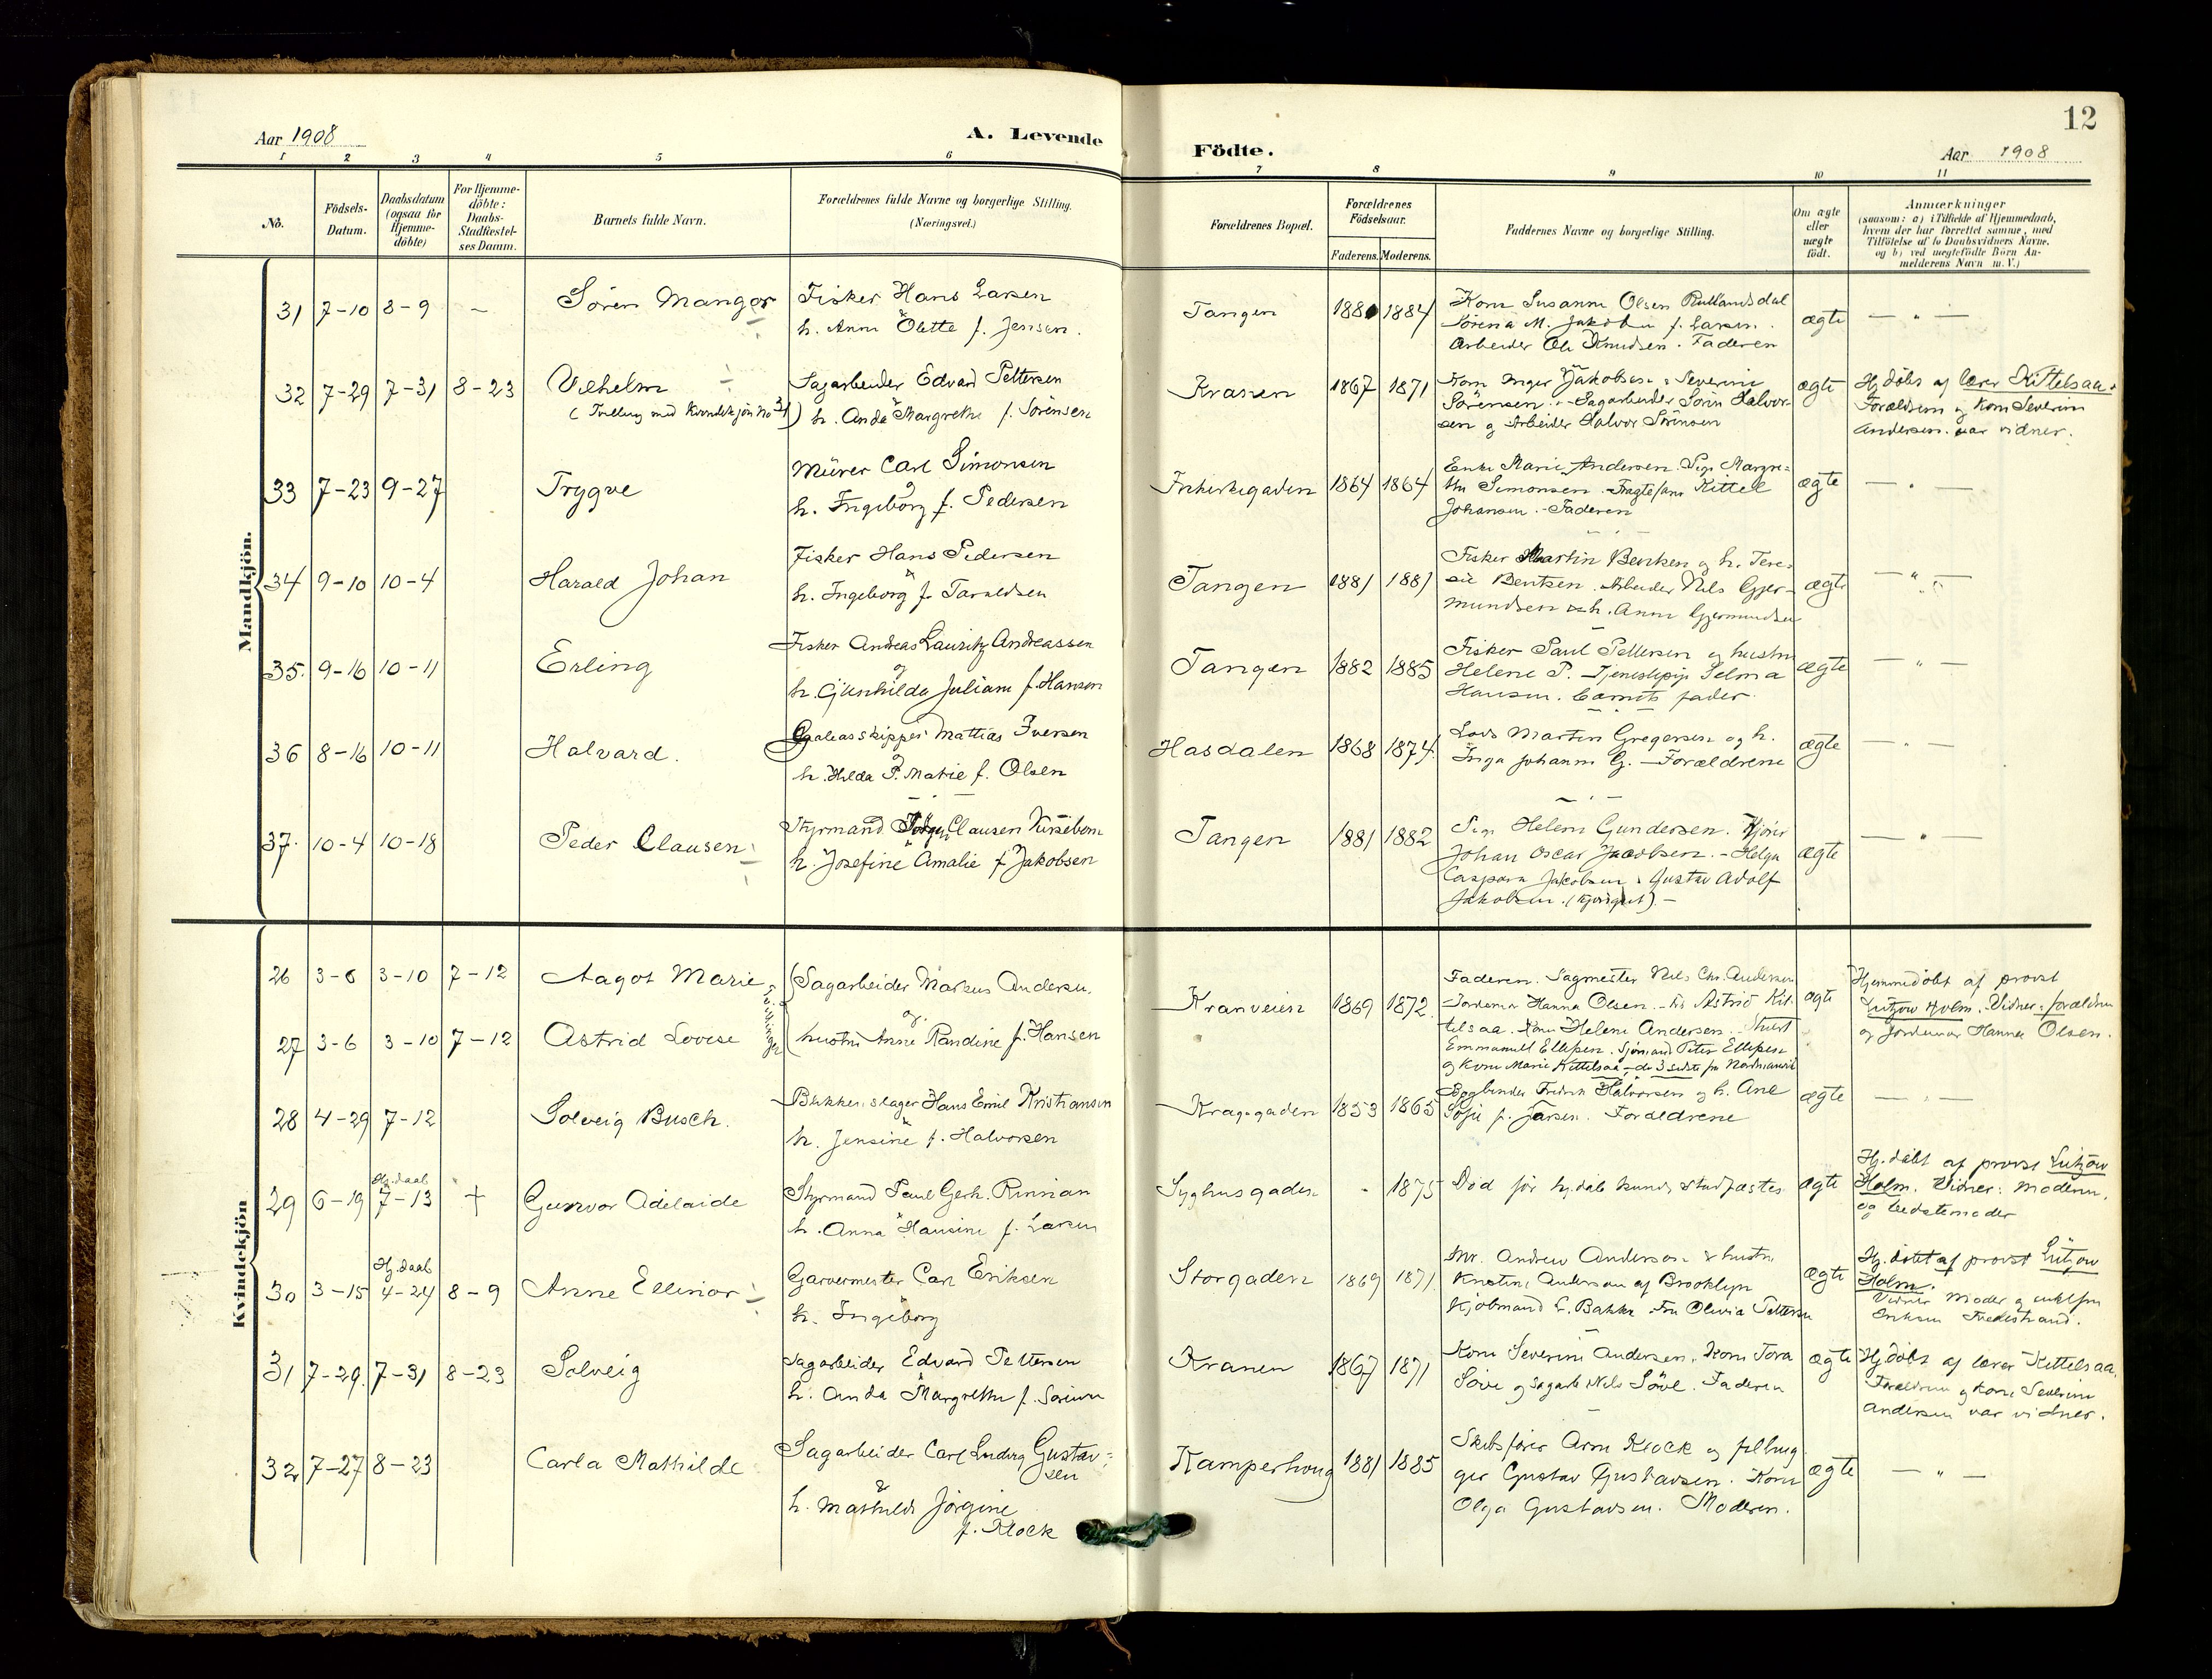 12
Aar 1908
A. Levende
Födte.
Aar 1908
1 2 3 4 5 6 7 8 9 10 11
No.
Födsels-
Datum.
Daabsdatum
(ogsaa for
Hjemme-
döbte)
For Hjemme-
döbte:
Daabs-
Stadfæstel-
ses Datum.
Barnets fulde Navn.
Forældrenes fulde Navne og borgerlige Stilling.
(Næringsvei.)
Forældrenes Bopæl.
Forældrenes
Födselsaar.
Faderens. Moderens.
Faddernes Navne og borgerlige Stilling.
Om ægte
eller
uægte
födt.
Anmærkninger
(saasom: a) i Tilfælde af Hjemmedaab,
hvem der har forrettet samme, med
Tilföielse af to Daabsvidners Navne,
og b) ved uægtefödte Börn An-
melderens Navn m. V.)
Mandkjön.
31 7-10 8-9 - Sören Mangor
Fisker Hans Larsen
h. Anne Olette f. Jensen.
Tangen 1880 1884
Kone Susanne Olsen
Sørena M. Jakobsen f. Larsen.
Arbeider Ole Knudsen. Faderen
ægte — " —
32 7-29 7-31 8-23 Vilhelm
(Tvilling med Kvindekjön No 31)
Sagarbeider Edvard Pettersen
h. Anda Margrethe f. Sörensen
Kranen 1867 1871
Kone Inger Jakobsen. Severine
Sörensen. - Sagarbeider Sörin Halvor-
sen og Arbeider Halvor Sörensen
ægte
Hj.döbt af lærer Kittelsaa.
Forældrene og Kone Severine
Andersen var vidner.
33 7-23 9-27 Trygve
Mürer Carl Simonsen
og
h. Ingeborg f. Pedersen
1864 1864
Enke Marie Andersen. Pige Margre-
the Simonsen. Kittel
Johansen. - Faderen
ægte — " —
34 9-10 10-4 Harald Johan
Fisker Hans Pedersen
h. Ingeborg f. Taraldsen
Tangen 1881 1881
Fisker Martin Bentsen og h. Tere-
sie Bentsen. Arbeider Nils Gjer-
mundsen & h. Anne Gjermundsen
ægte — " —
35. 9-16 10-11 Erling
Fisker Andreas Lauritz Andreassen
og
h. Gunhilda Juliane f. Hansen
Tangen 1882 1885
Fisker Paul Pettersen og hustru
Helene P. Tjenestepige Selma
Hansen. Barnets fader.
ægte — " —
36 8-16 10-11 Halvard.
Galeasskipper Mattias Iversen
og
h. Hilda P. Marie f. Olsen
Hasdalen 1868 1874.
Lods Martin Gregersen og h.
Inga Johanne G. - Forældrene
ægte — " —
37. 10-4 10-18 Peder Clausen
Styrmand Clausen Kirsebom
h. Josefine Amalie f. Jakobsen
Tangen 1881 1882
Pige Helene Gundersen.
Johan Oscar Jacobsen. - Helga
Caspara Jakobsen. Gustav Adolf
Jakobsen.
ægte — " —
Kvindekjön
26 3-6 3-10 7-12 Aagot Marie
27 3-6 3-10 7-12 Astrid Lovise
Tvillinger
Sagarbeider Markus Andersen.
og
hustru Anne Randine f. Hansen
Kranveien 1869 1872.
Faderen. Sagmester Nils Chr. Andersen
Jordemor Hanna Olsen. - Astrid Kit-
telsaa. Kone Helene Andersen.
Emmanuel Ellefsen. Sjömand Peter Ellefsen
og Kone Marie Kittelsaa - de 3 sidste fra
ægte
Hjemmedöbt af provst
Lützow Holm. Vidner: forældrene
og Jordemor Hanna Olsen.
28 4-29 7-12 Solveig Busch.
Blikkenslager Hans Emil Kristiansen
h. Jensine f. Halvorsen
Kragsgaden 1853 1865
Bogbinder Fredrik Halvorsen og h. Ane
Sofie f. Forældrene
ægte — " —
29 6-19 Hj.daab 7-13 † Gunvor Adelaide
Styrmand Paul Gerh. Rinnan
h. Anna Hansine f. Larsen
Syghusgaden - 1875
Död för hj.daab kunde stadfæstes
ægte
Hj.döbt af provst Lützow
Holm. Vidner: Moderen.
og bedstemoder
30 3-15 Hj.daab 4-24 8-9 Anne Ellinor
Garvermester Carl Eriksen
h. Ingeborg
Storgaden 1869 1871.
Mr. Andrew Anderson & hustru
Kristine Anderson af Brooklyn
Kjöbmand L. Bakke. Fru Olivia Pettersen
ægte
Hj.döbt af provst Lützow
Holm.
Vidner Moder og enkefru
Eriksen Fredrikstad.
31 7-29. 7-31 8-23 Solveig
Sagarbeider Edvard Pettersen
h. Anda Margrethe f. Sörensen
Kranen 1867 1871
Kone Severine Andersen. Kone Tora
og Sagarb. Nils Faderen
ægte
Hj.döbt af lærer Kittelsaa.
Forældrene og Kone Severine
Andersen var vidner.
32 7-27 8-23 Carla Mathilde
Sagarbeider Carl Ludvig Gustav-
sen
&
h. Mathilde Jörgine
f. Klock
Kamperhoug 1881 1885
Skibsförer Arne Klock og filhug-
ger Gustav Gustavsen. Kone
Olga Gustavsen. Moderen.
ægte — " —